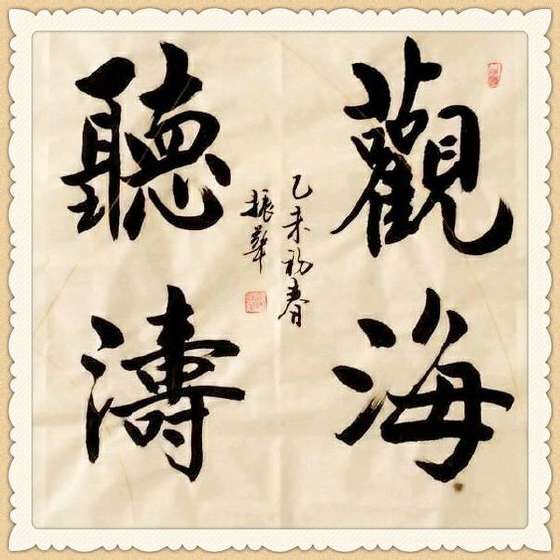 觀海
聽濤
乙未初春
振華